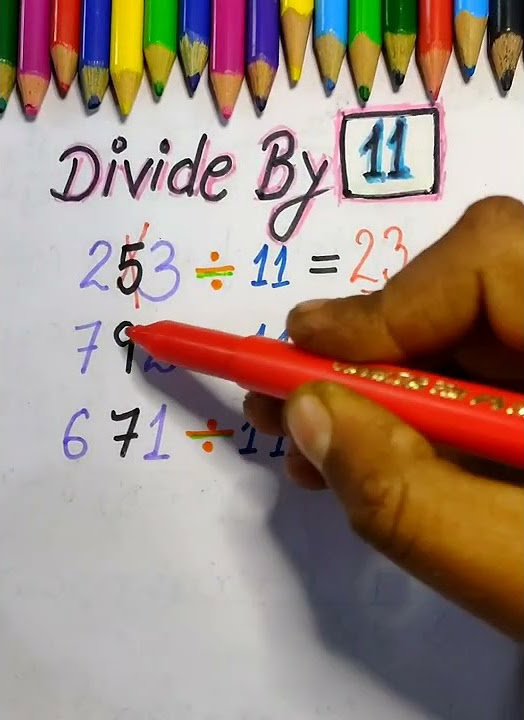 Divide By 11
253 ÷ 11 = 23
792 11
671 ÷ 11